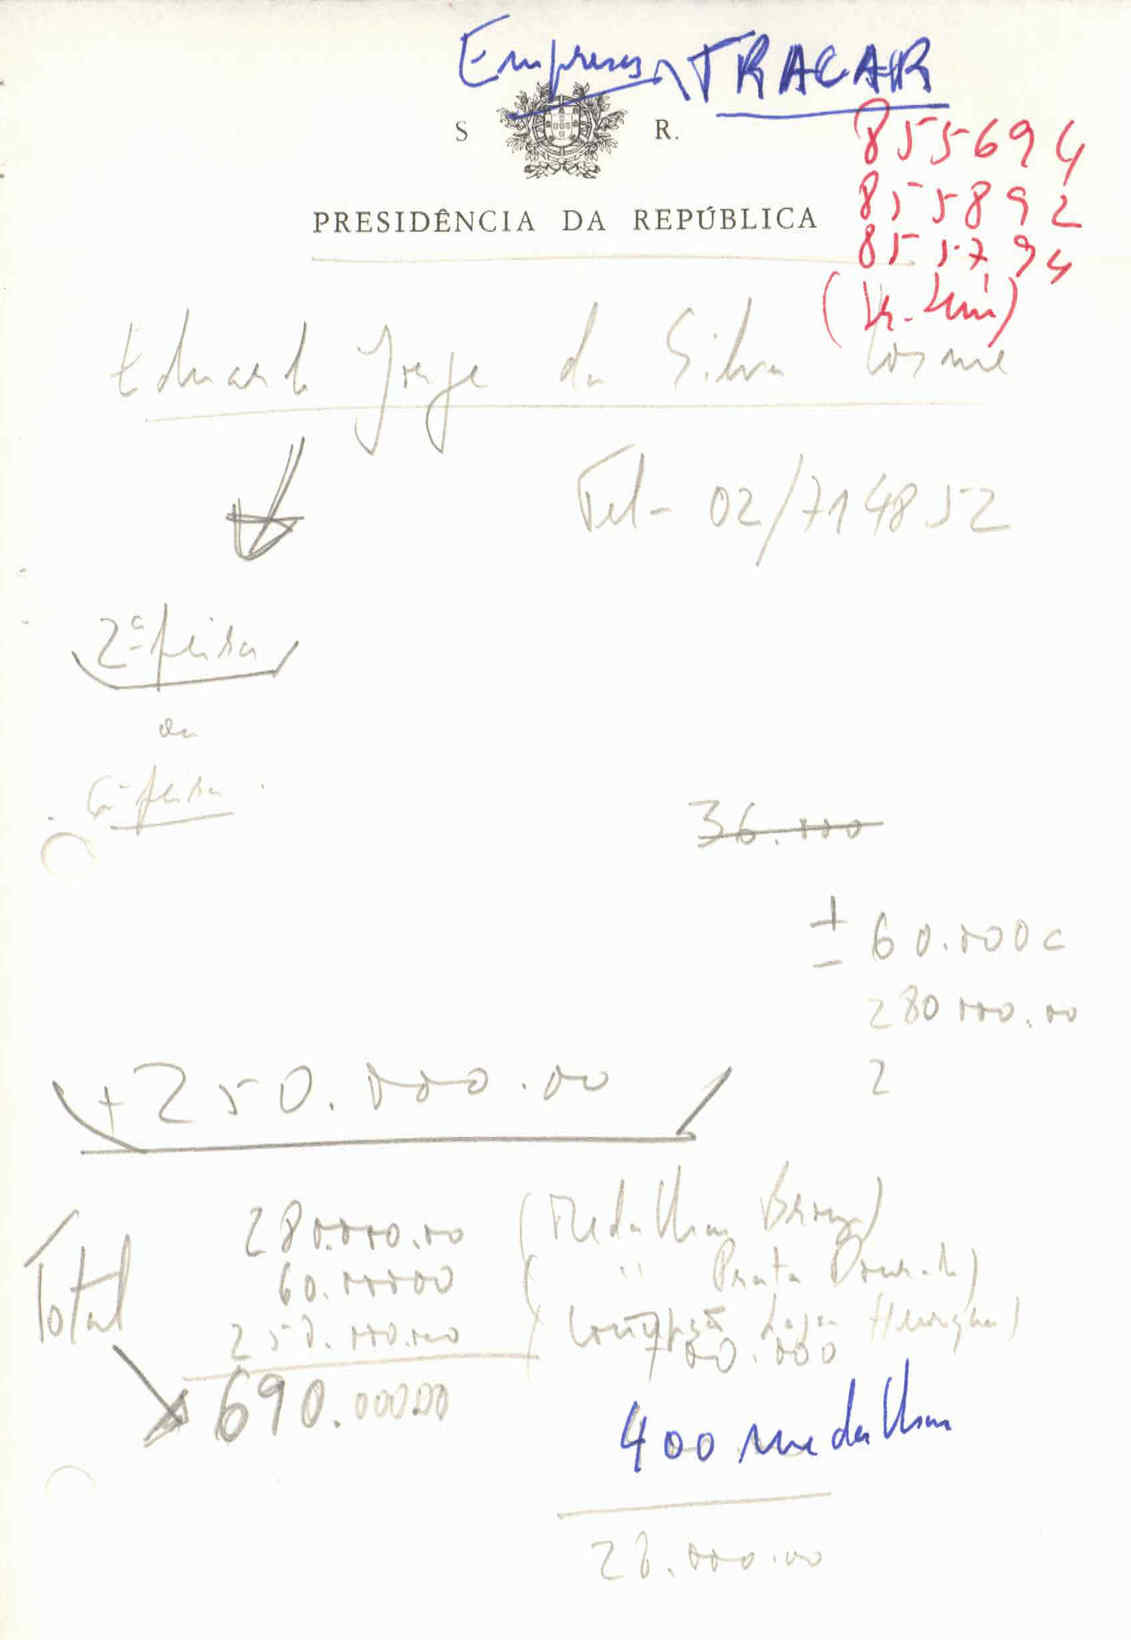 Empresa TRACAR
S R.
855694
PRESIDÊNCIA DA REPÚBLICA
855892
855794
Eduardo Jorge da Silva Cosme
Tel - 02/714852
2ª feira
ou
6ª feira
36.000
± 60.000
280 000.00
2
+ 250.000.00
Total
280.000.00 (Medalhas Bronze)
60.00000 ( " Prata Dourada)
250.000.000
700.000
690.00000
400 medalhas
28.000.00